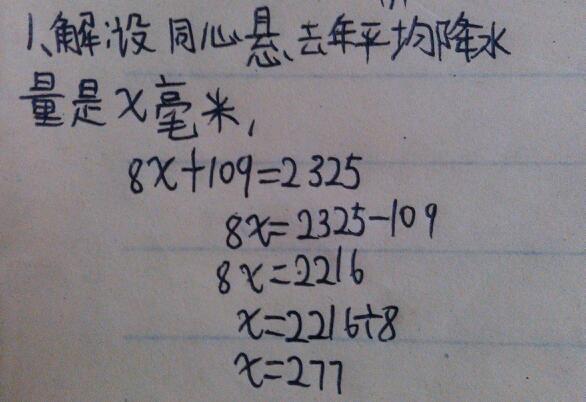 1、解:设同心悬、去年平均降水
量是x毫米,
8x+109=2325
8x=2325-109
8x=2216
x=2216÷8
x=277